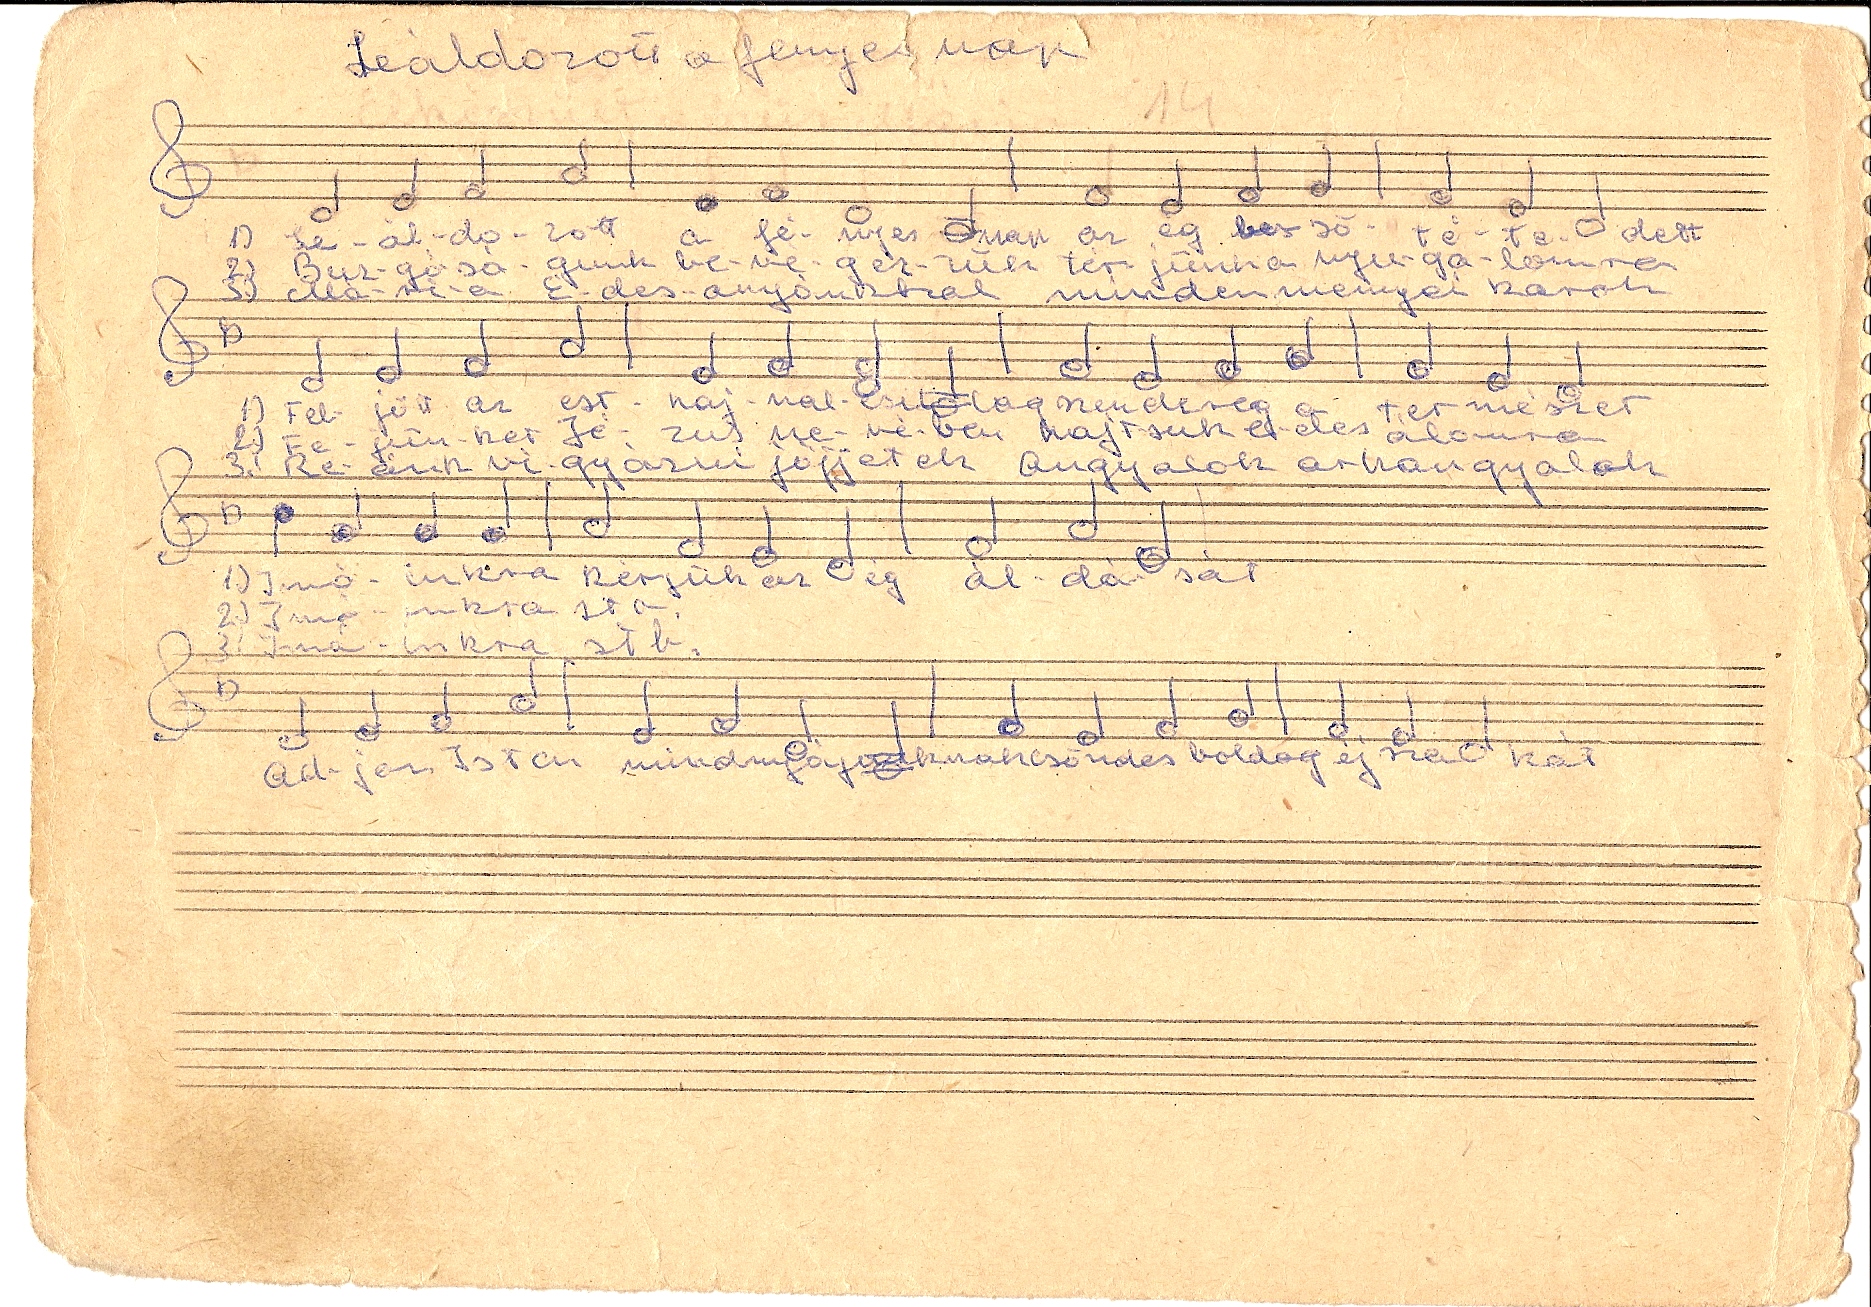 Leáldozott a fenyes nap
14
1) Le-ál-do-zott a fé-nyes nap az ég besö-té-te-dett
2) Buz-gósá-gunk be-vé-gez-zük tér-jünk a nyu-ga-lomra
3.) Má-ri-a É-des-anyánkkal minden mennyei karok
1) Fel-jött az est-haj-nal-csillag szendereg a természet
2) Fe-jün-ket Jé-zus ne-vé-ben hajtsuk é-des álomra
3.) Re-ánk vi-gyázni jöjjetek Angyalok arkangyalok
1) Imá-inkra kérjük az ég ál-dá-sát
2.) Imá-inkra stb.
3. Imá-inkra stb.
Ad-jon Isten mindnyájunknak csöndes boldog éjszakát